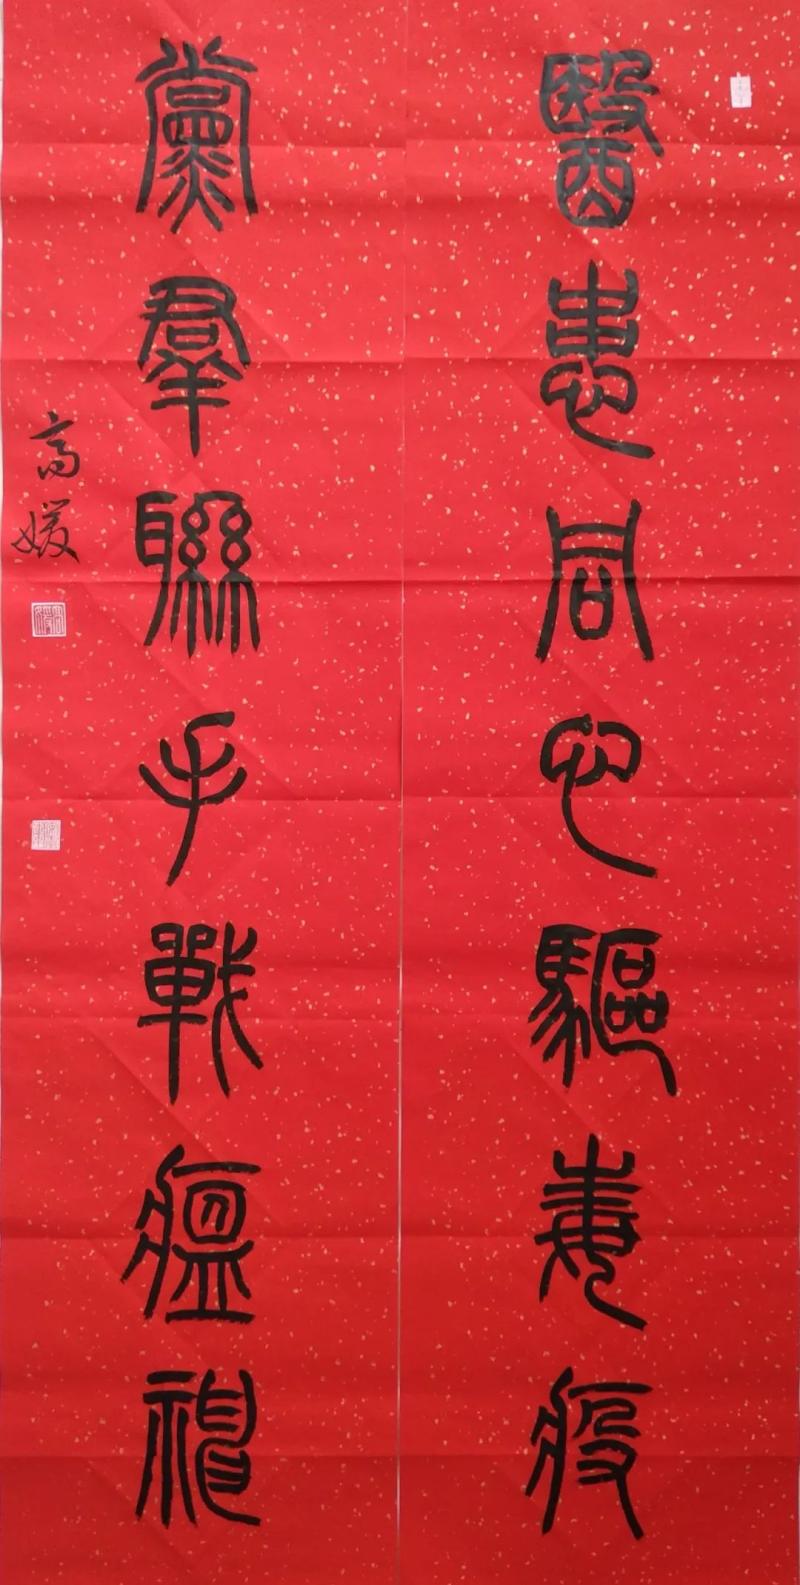 醫患同心驅毒疫
黨羣聯手戰瘟神
高媛